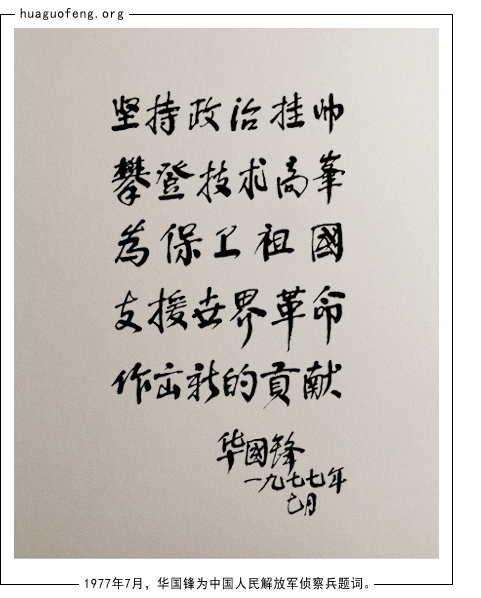 huaguofeng.org
坚持政治挂帅
攀登技术高峯
为保卫祖國
支援世界革命
作出新的贡献
华國锋
一九七七年
七月
1977年7月，华国锋为中国人民解放军侦察兵题词。